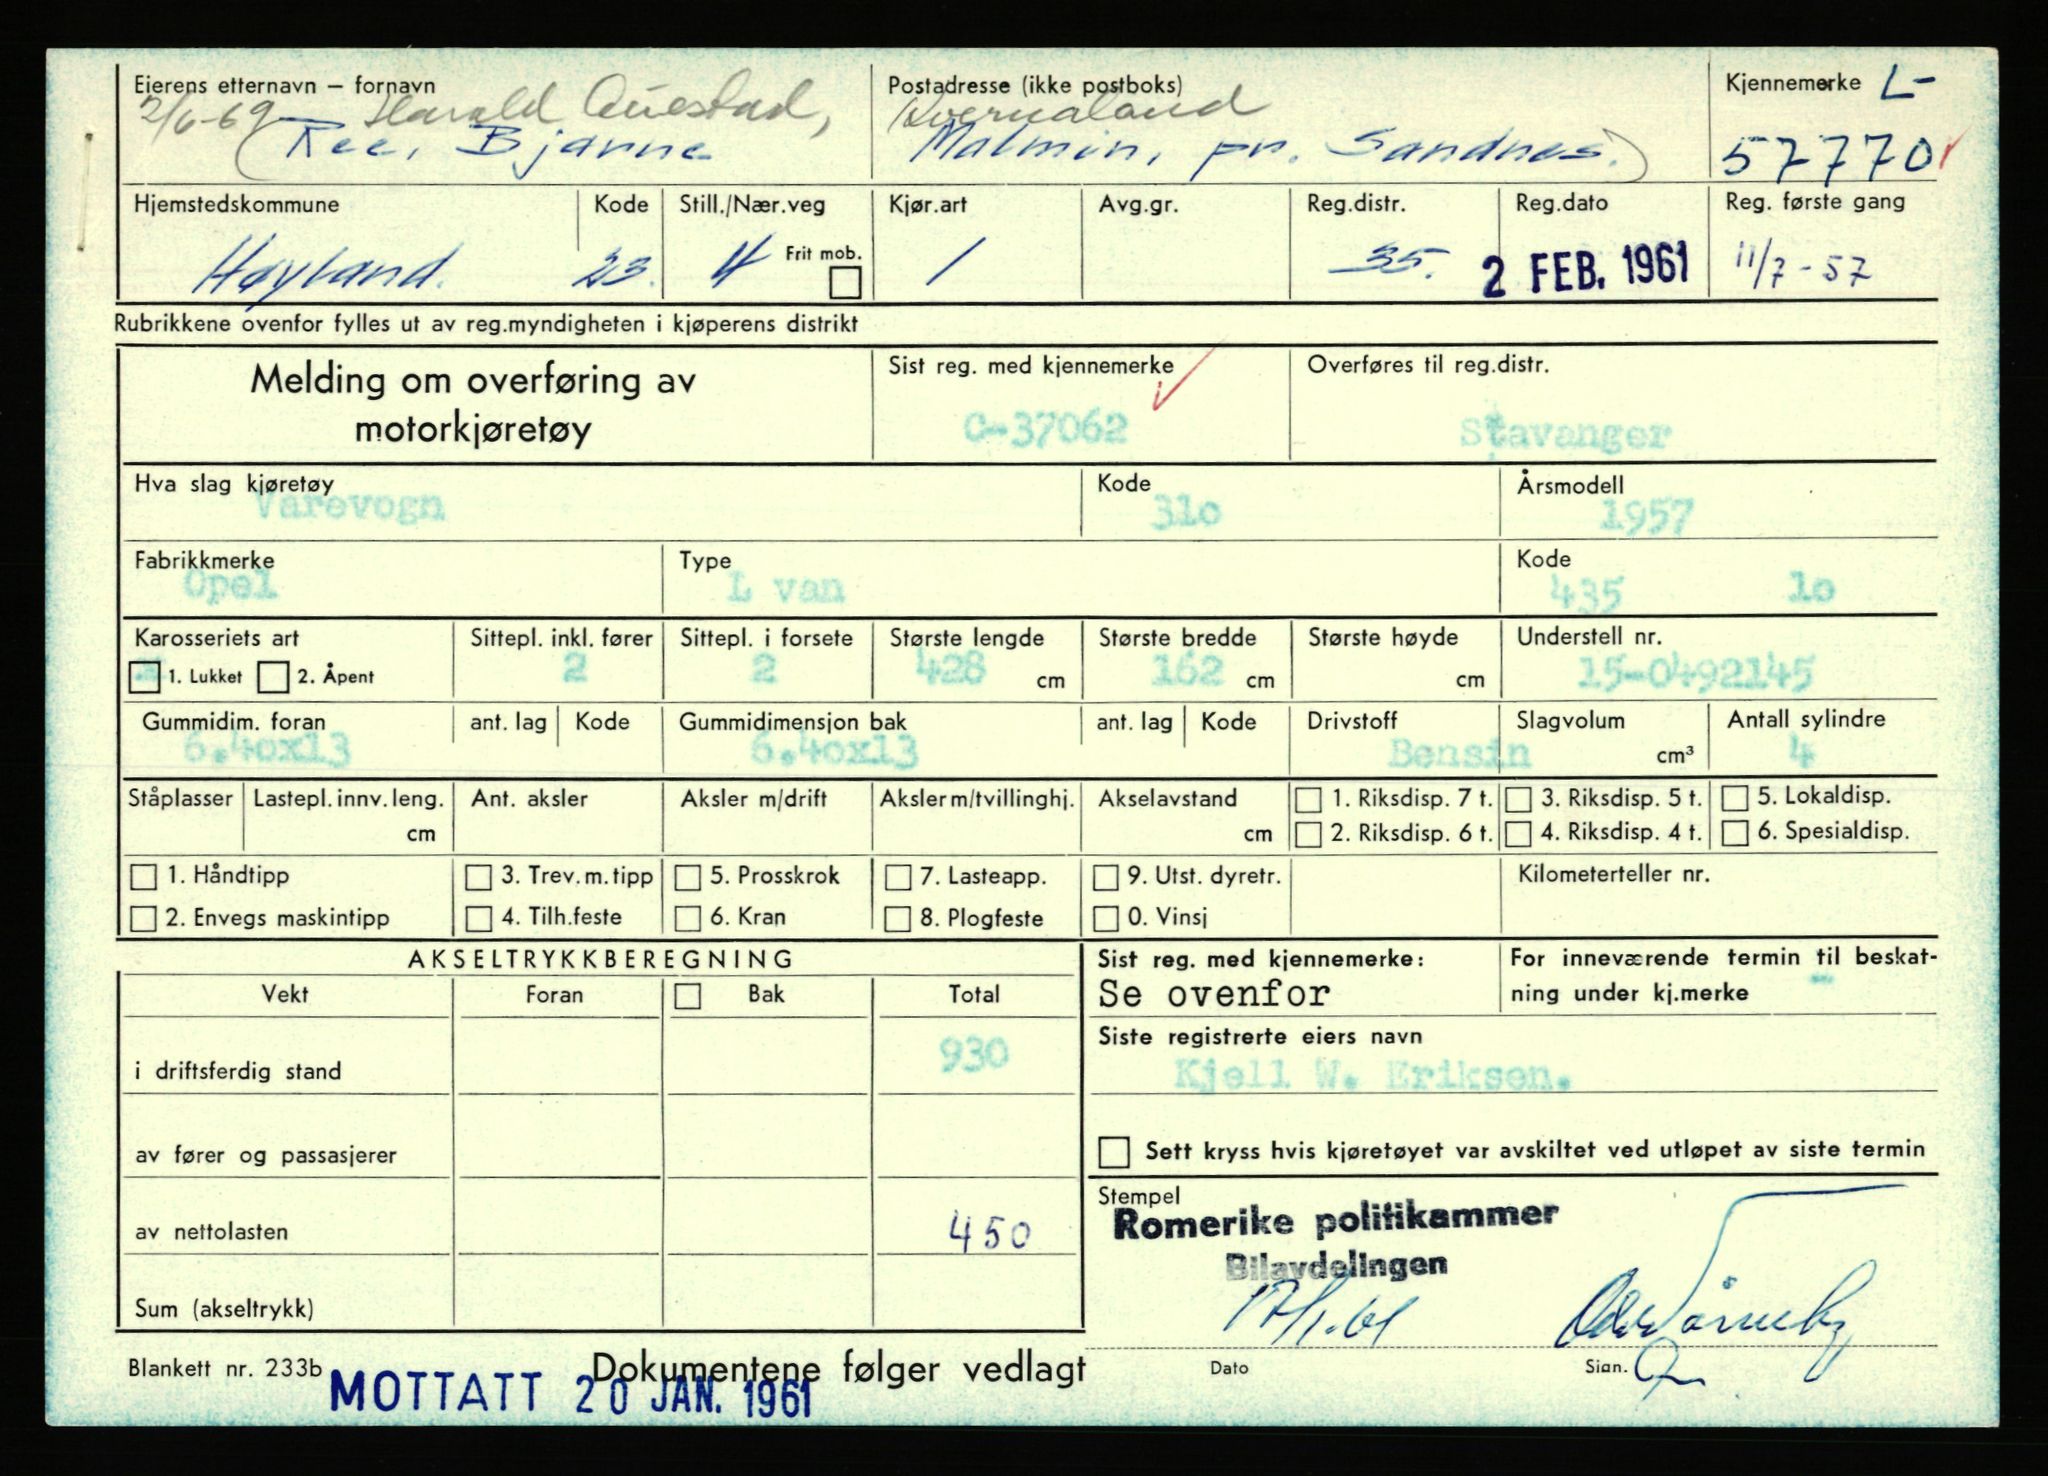 Eierens etternavn – fornavn
2/6-69 Harald Auestad,
(Ree, Bjarne
Postadresse (ikke postboks)
Kvernaland
Malmin, pr. Sandnes.)
Kjennemerke L-
57770
Hjemstedskommune
Høyland.
Kode
23.
Still./Nær.veg
4
Frit mob.
Kjør.art
1
Avg.gr.
Reg.distr.
35.
Reg.dato
2 FEB. 1961
Reg. første gang
11/7-57
Rubrikkene ovenfor fylles ut av reg.myndigheten i kjøperens distrikt
Melding om overføring av
motorkjøretøy
Sist reg. med kjennemerke
C-37062
Overføres til reg.distr.
Stavanger
Hva slag kjøretøy
Varevogn
Kode
31o
Årsmodell
1957
Fabrikkmerke
Opel
Type
L van
Kode
435 1o
Karosseriets art
1. Lukket 2. Åpent
Sittepl. inkl. fører
2
Sittepl. i forsete
2
Største lengde
428 cm
Største bredde
162 cm
Største høyde
cm
Understell nr.
15-0492145
Gummidim. foran
6.4ox13
ant. lag Kode
Gummidimensjon bak
6.4ox13
ant. lag Kode
Drivstoff
Bensin
Slagvolum
cm³
Antall sylindre
4
Ståplasser
Lastepl. innv. leng.
cm
Ant. aksler
Aksler m/drift
Aksler m/tvillinghj.
Akselavstand
cm
1. Riksdisp. 7 t. 3. Riksdisp. 5 t. 5. Lokaldisp.
2. Riksdisp. 6 t. 4. Riksdisp. 4 t. 6. Spesialdisp.
1. Håndtipp 3. Trev. m. tipp 5. Prosskrok 7. Lasteapp. 9. Utst. dyretr.
2. Envegs maskintipp 4. Tilh.feste 6. Kran 8. Plogfeste 0. Vinsj
Kilometerteller nr.
AKSELTRYKKBEREGNING
Vekt Foran Bak Total
i driftsferdig stand 930
av fører og passasjerer
av nettolasten 450
Sum (akseltrykk)
Sist reg. med kjennemerke:
Se ovenfor
For inneværende termin til beskat-
ning under kj.merke -
Siste registrerte eiers navn
Kjell W. Eriksen.
Sett kryss hvis kjøretøyet var avskiltet ved utløpet av siste termin
Stempel
Romerike politikammer
Bilavdelingen
17/1.61
Dato
Sign.
Blankett nr. 233b
Dokumentene følger vedlagt
MOTTATT 20 JAN. 1961